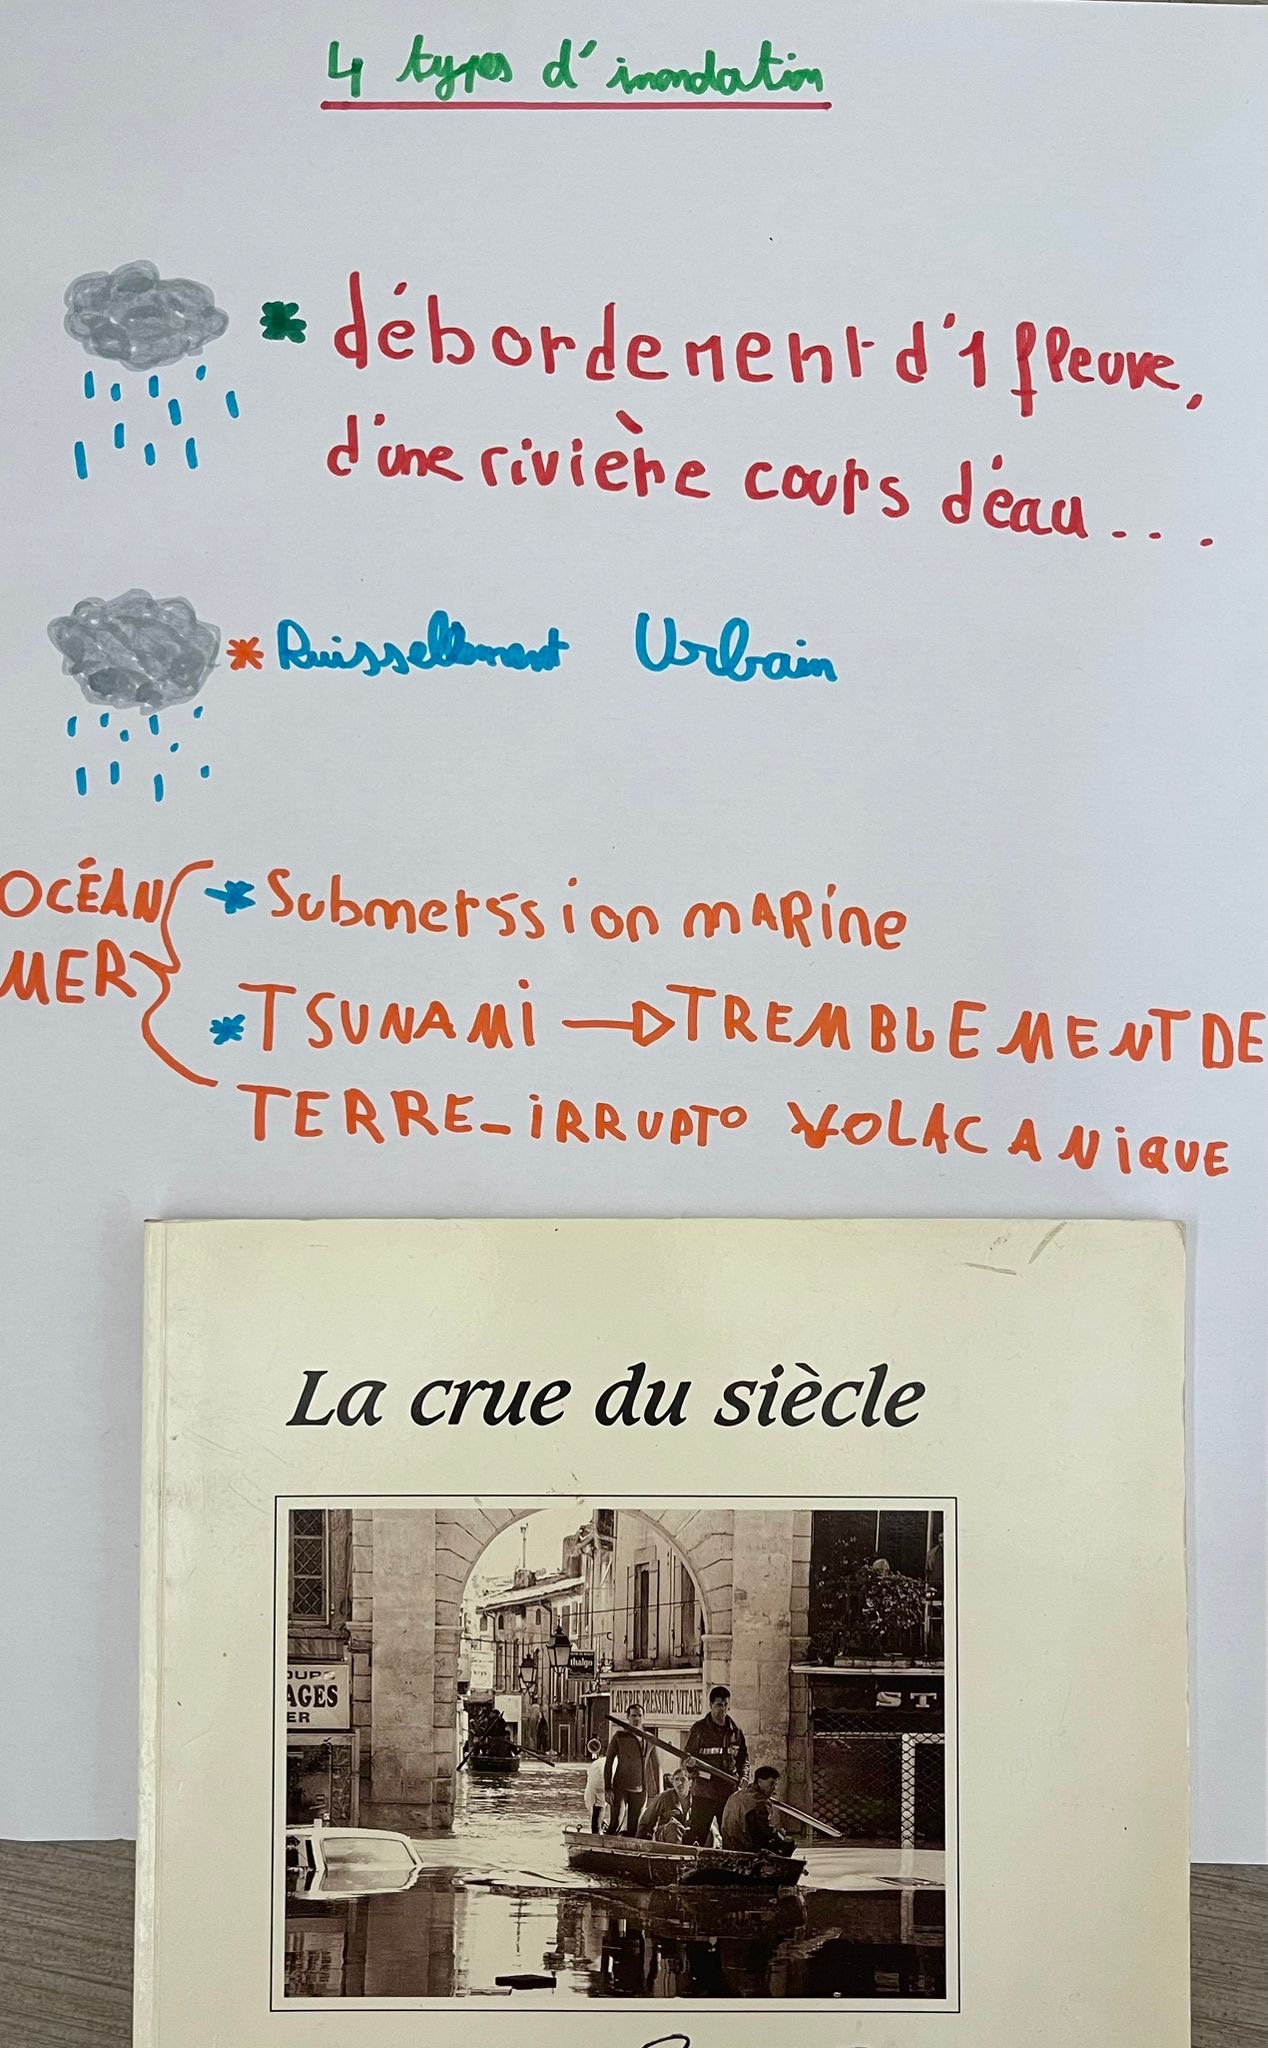 4 types d'inondation
* débordement d'1 fleuve,
d'une rivière cours d'eau...
* Ruissellement Urbain
OCÉAN
MER
* Submerssion mARine
* TSUNAMi → TREMBLEMENT DE
TERRE_iRRUPTO VOLACANiQUE
La crue du siècle
AGES
ER
thalgo
LAVERIE PRESSING VITANE
ST